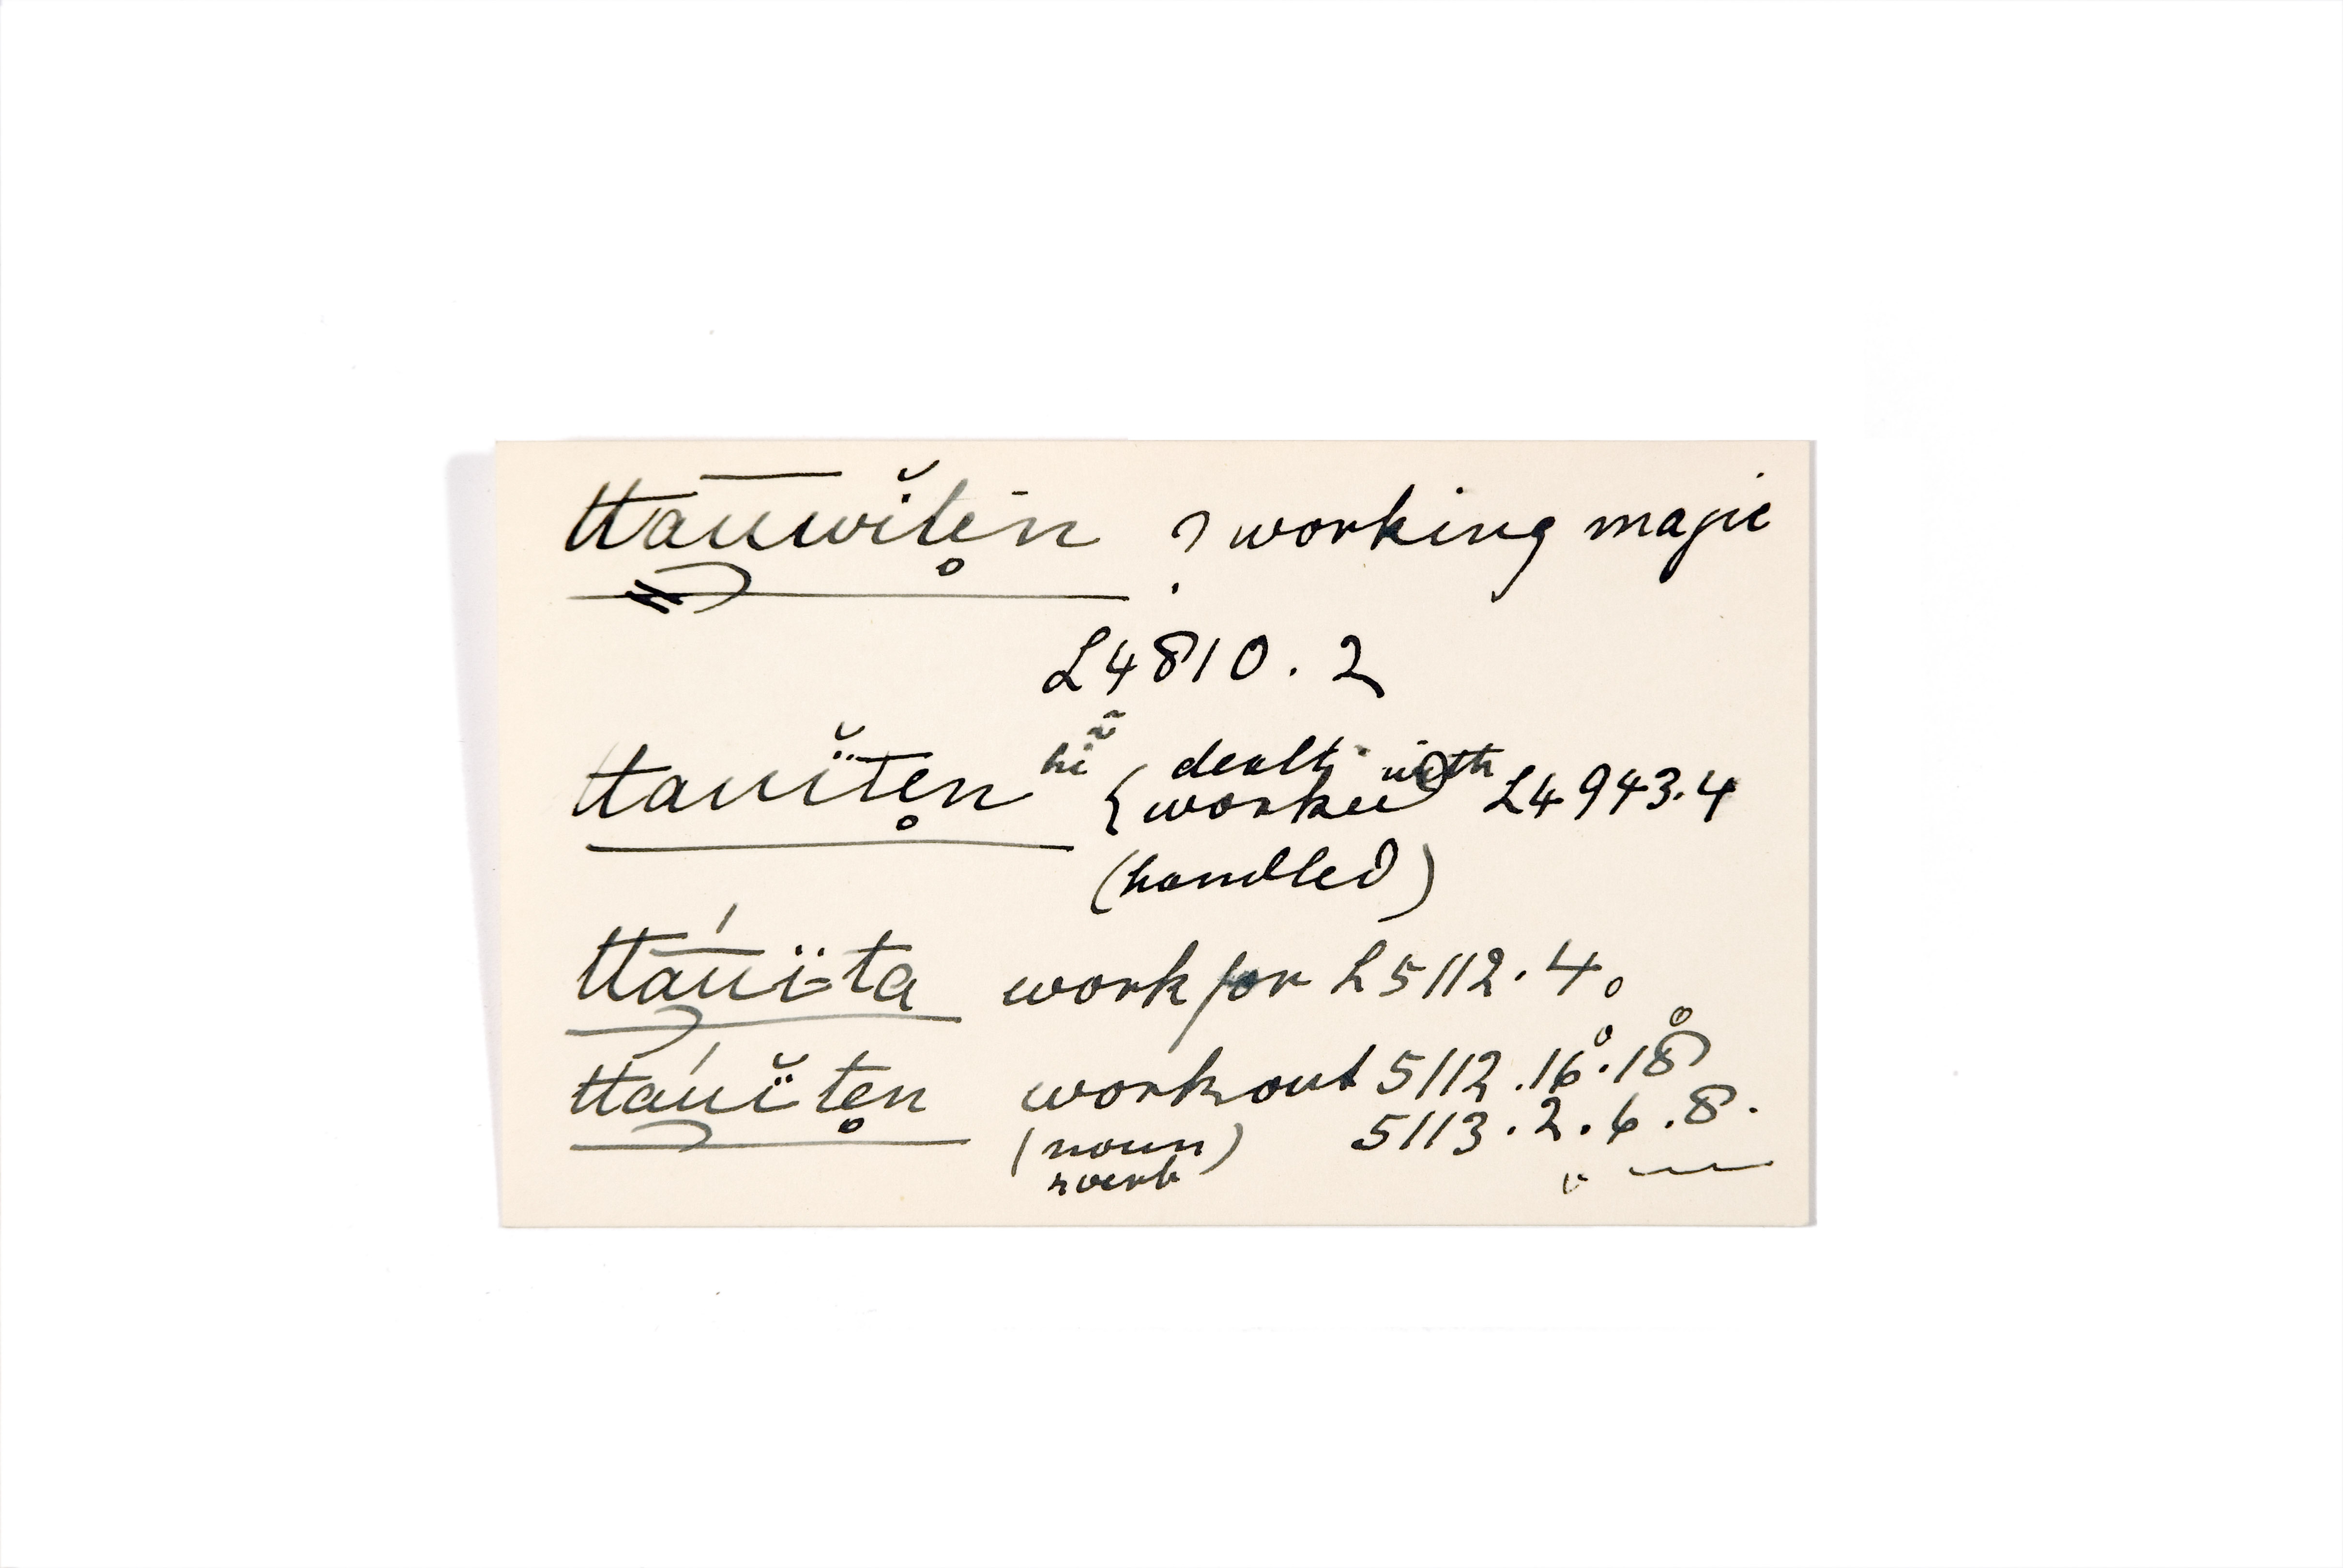 ttāūwĭtẹn ? working magic
L4810.2
ttauïtẹn hĩ { dealt with worked L4943.4
(handled)
ttáuï-ta work for L5112.4.
ttáuïtẹn work out 5112.16.18
(noun) 5113.2.6.8.
& verb